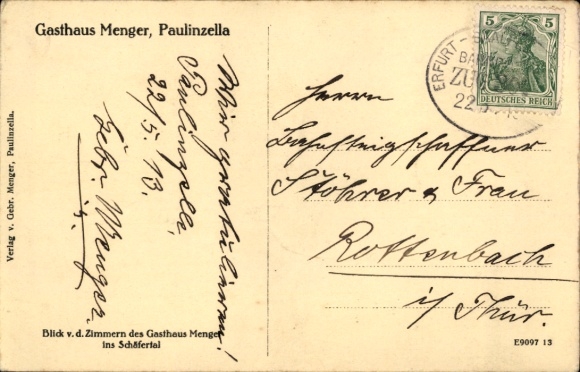 Gasthaus Menger, Paulinzella
Wir gratulieren!
Paulinzella,
22/5. 13.
Gebr. Menger.
Verlag v. Gebr. Menger, Paulinzella.
Blick v. d. Zimmern des Gasthaus Menger
ins Schäfertal
5 5
DEUTSCHES REICH
ERFURT
BAHNP
ZUG
22.5.
Herrn
Bahnsteigschaffner
Stöhrer & Frau
Rottenbach
i/ Thür.
E9097 13